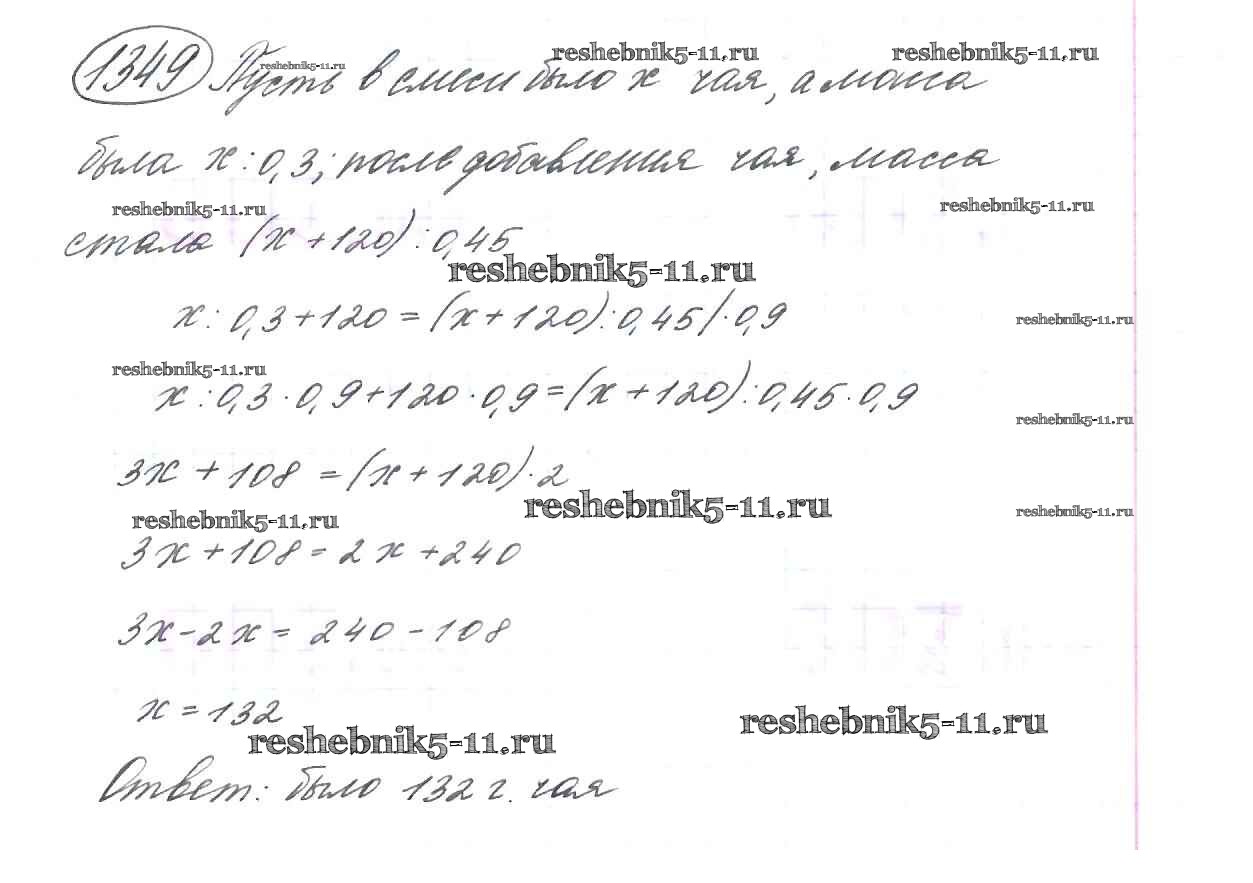 reshebnik5-11.ru reshebnik5-11.ru
1349 Пусть в смеси было x чая, а масса
reshebnik5-11.ru
была x : 0,3; после добавления чая, масса
reshebnik5-11.ru reshebnik5-11.ru
стала (x + 120) : 0,45
reshebnik5-11.ru
x : 0,3 + 120 = (x + 120) : 0,45 / · 0,9
reshebnik5-11.ru
reshebnik5-11.ru
x : 0,3 · 0,9 + 120 · 0,9 = (x + 120) : 0,45 · 0,9
reshebnik5-11.ru
3x + 108 = (x + 120) · 2
reshebnik5-11.ru
reshebnik5-11.ru reshebnik5-11.ru
3x + 108 = 2x + 240
3x - 2x = 240 - 108
x = 132
reshebnik5-11.ru reshebnik5-11.ru
Ответ: было 132 г. чая